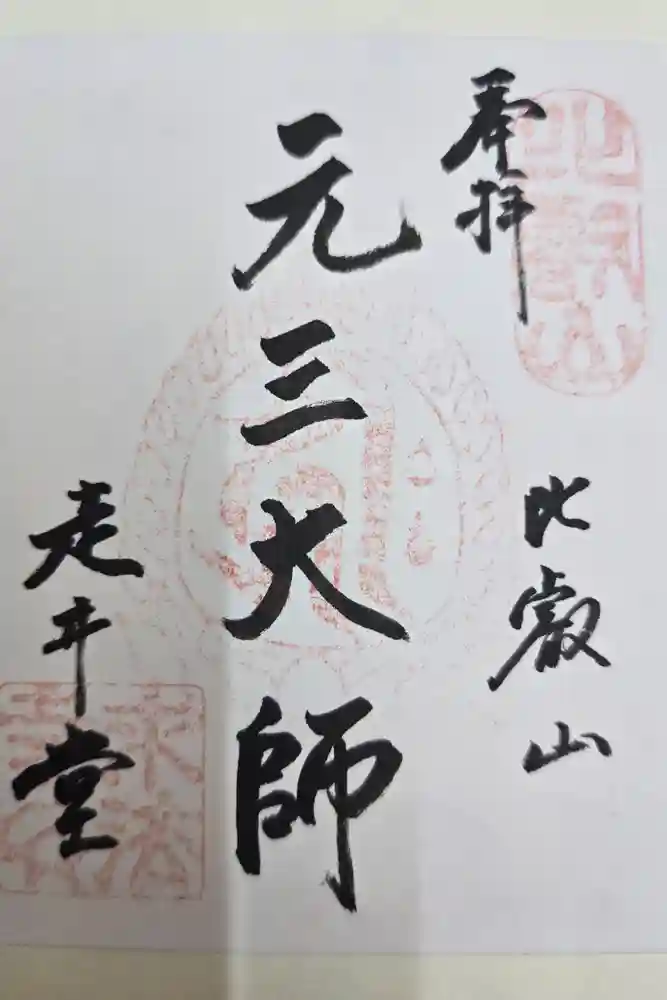 奉拝
比叡山
元三大師
走井堂
比叡山